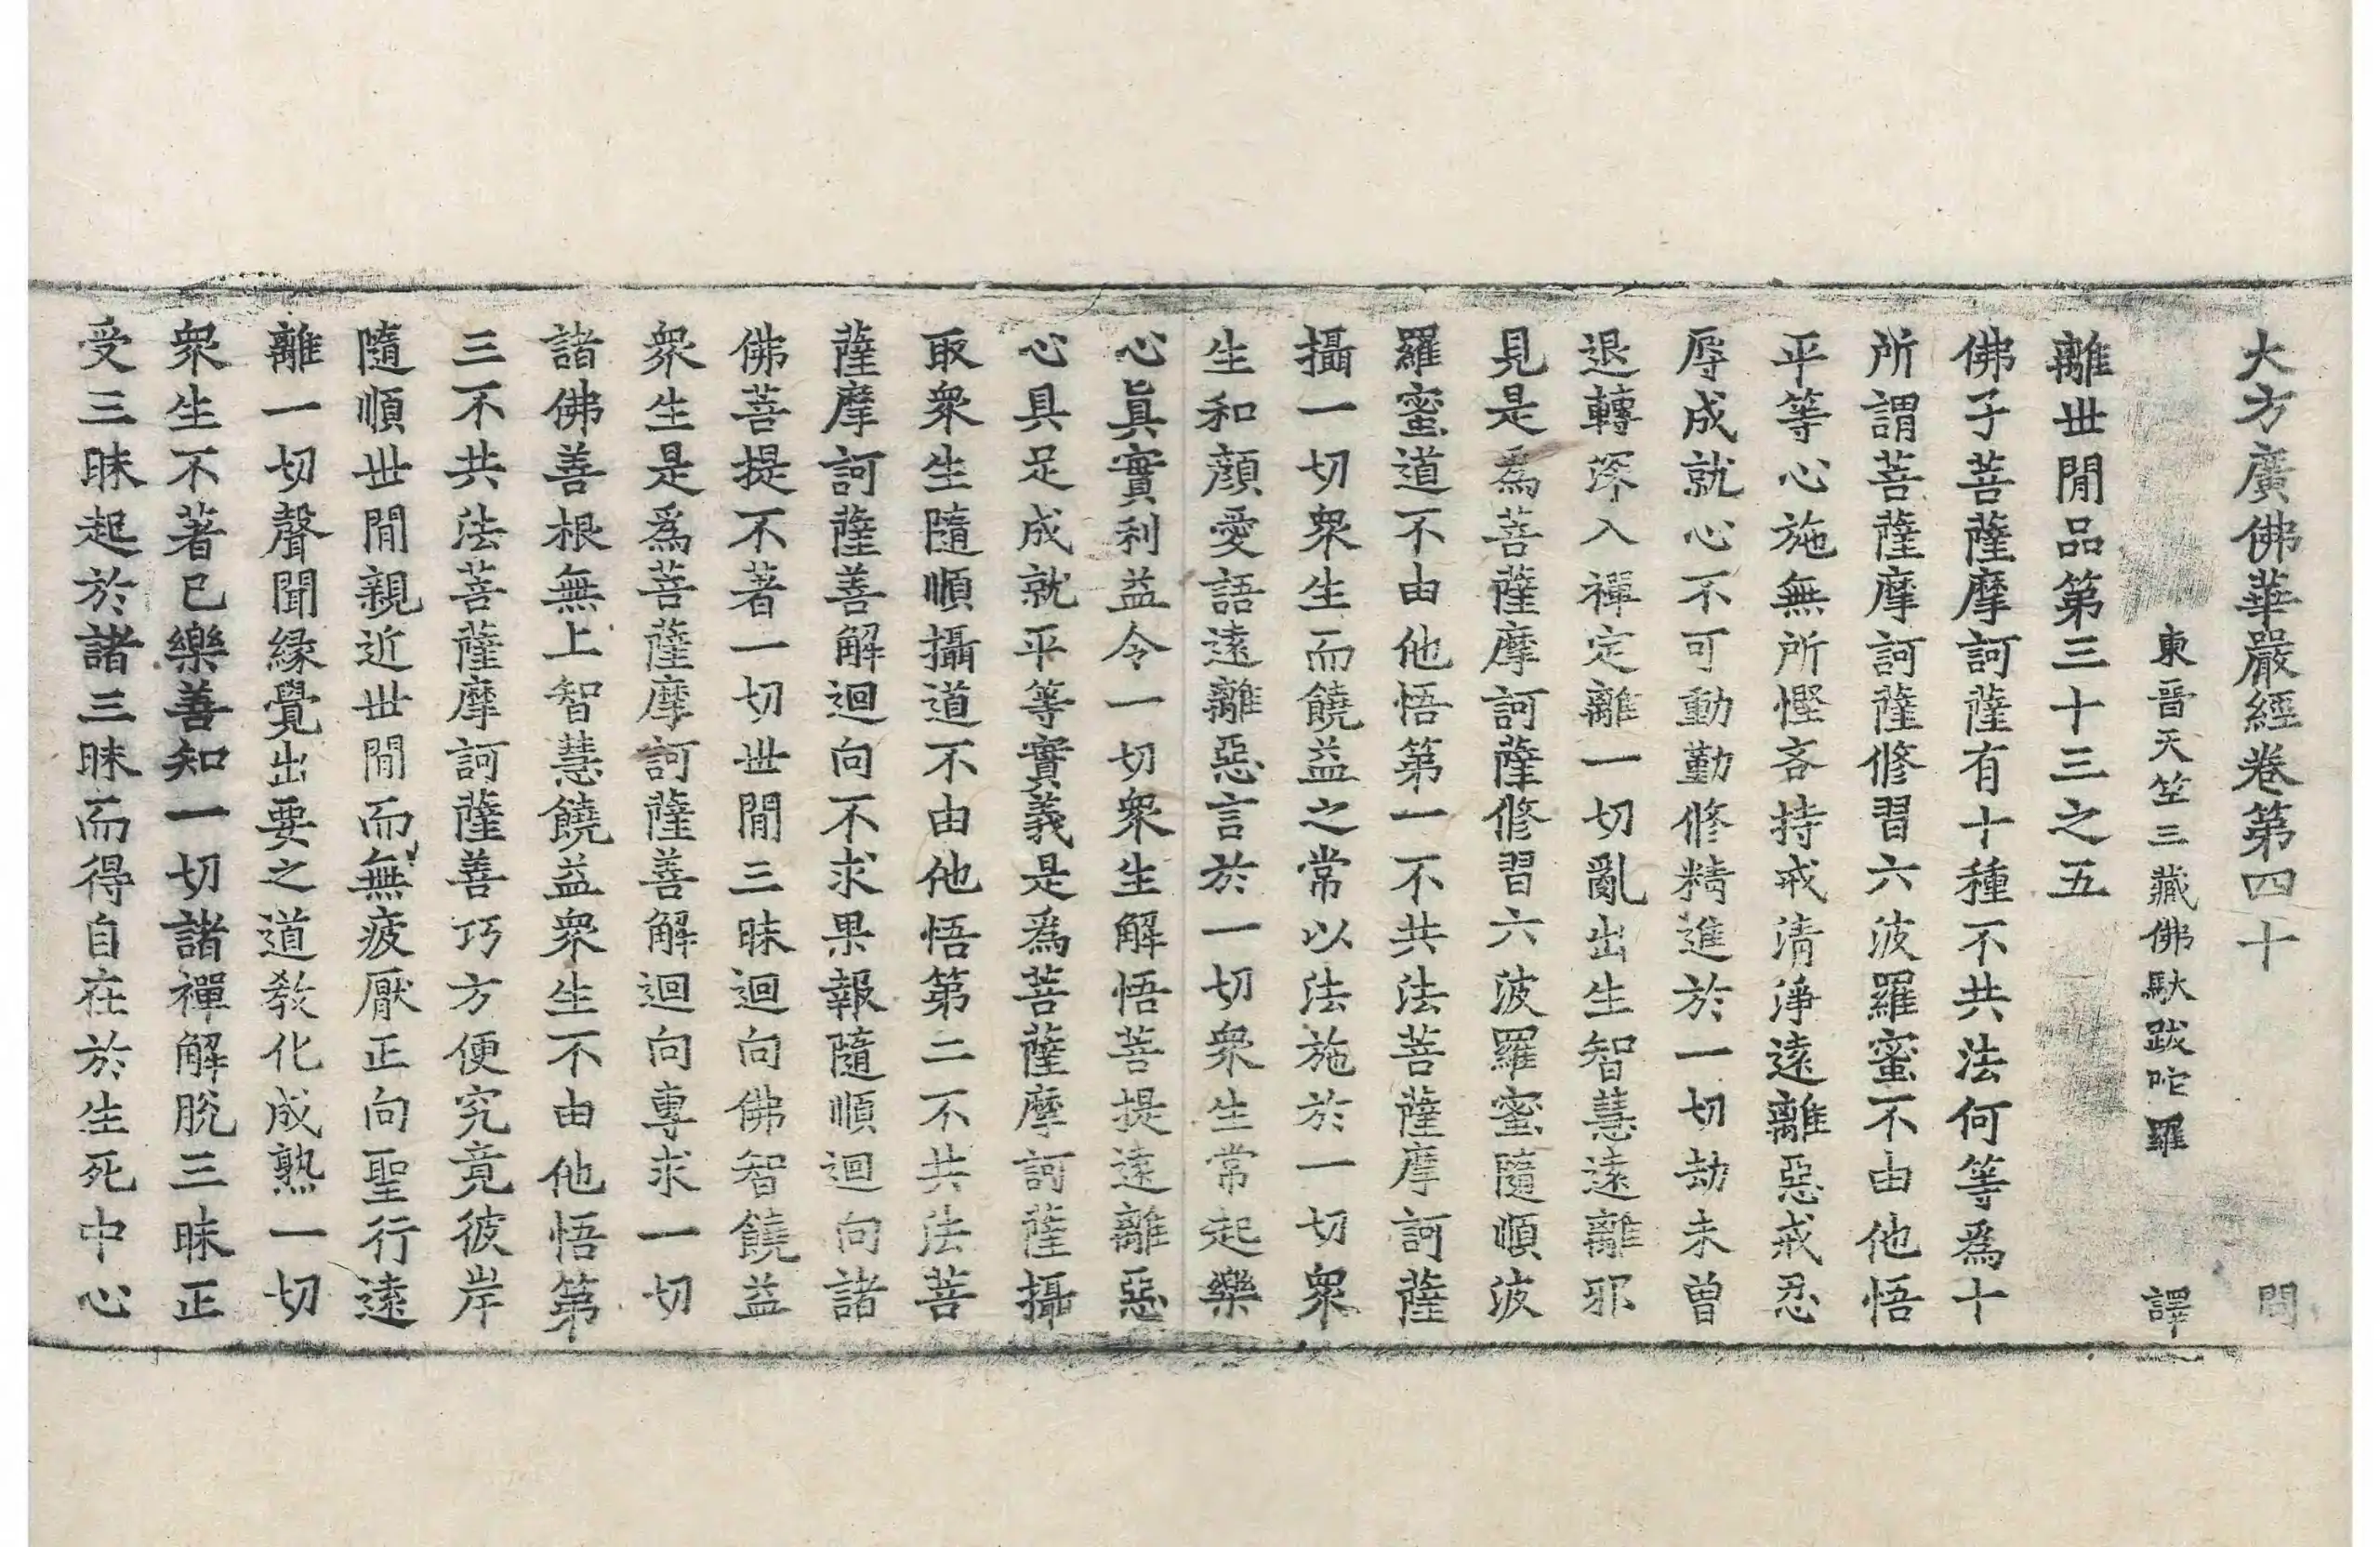 大方廣佛華嚴經卷第四十 問
東晉天竺三藏佛馱跋陀羅 譯
離世間品第三十三之五
佛子菩薩摩訶薩有十種不共法何等為十
所謂菩薩摩訶薩修習六波羅蜜不由他悟
平等心施無所慳吝持戒清淨遠離惡戒忍
辱成就心不可動勤修精進於一切劫未曾
退轉深入禪定離一切亂出生智慧遠離邪
見是為菩薩摩訶薩修習六波羅蜜隨順波
羅蜜道不由他悟第一不共法菩薩摩訶薩
攝一切眾生而饒益之常以法施於一切眾
生和顏愛語遠離惡言於一切眾生常起樂
心真實利益令一切眾生解悟菩提遠離惡
心具足成就平等實義是為菩薩摩訶薩攝
取眾生隨順攝道不由他悟第二不共法菩
薩摩訶薩善解迴向不求果報隨順迴向諸
佛菩提不著一切世間三昧迴向佛智饒益
眾生是為菩薩摩訶薩善解迴向專求一切
諸佛善根無上智慧饒益眾生不由他悟第
三不共法菩薩摩訶薩善巧方便究竟彼岸
隨順世間親近世間而無疲厭正向聖行遠
離一切聲聞緣覺出要之道教化成熟一切
眾生不著已樂善知一切諸禪解脫三昧正
受三昧起於諸三昧而得自在於生死中心